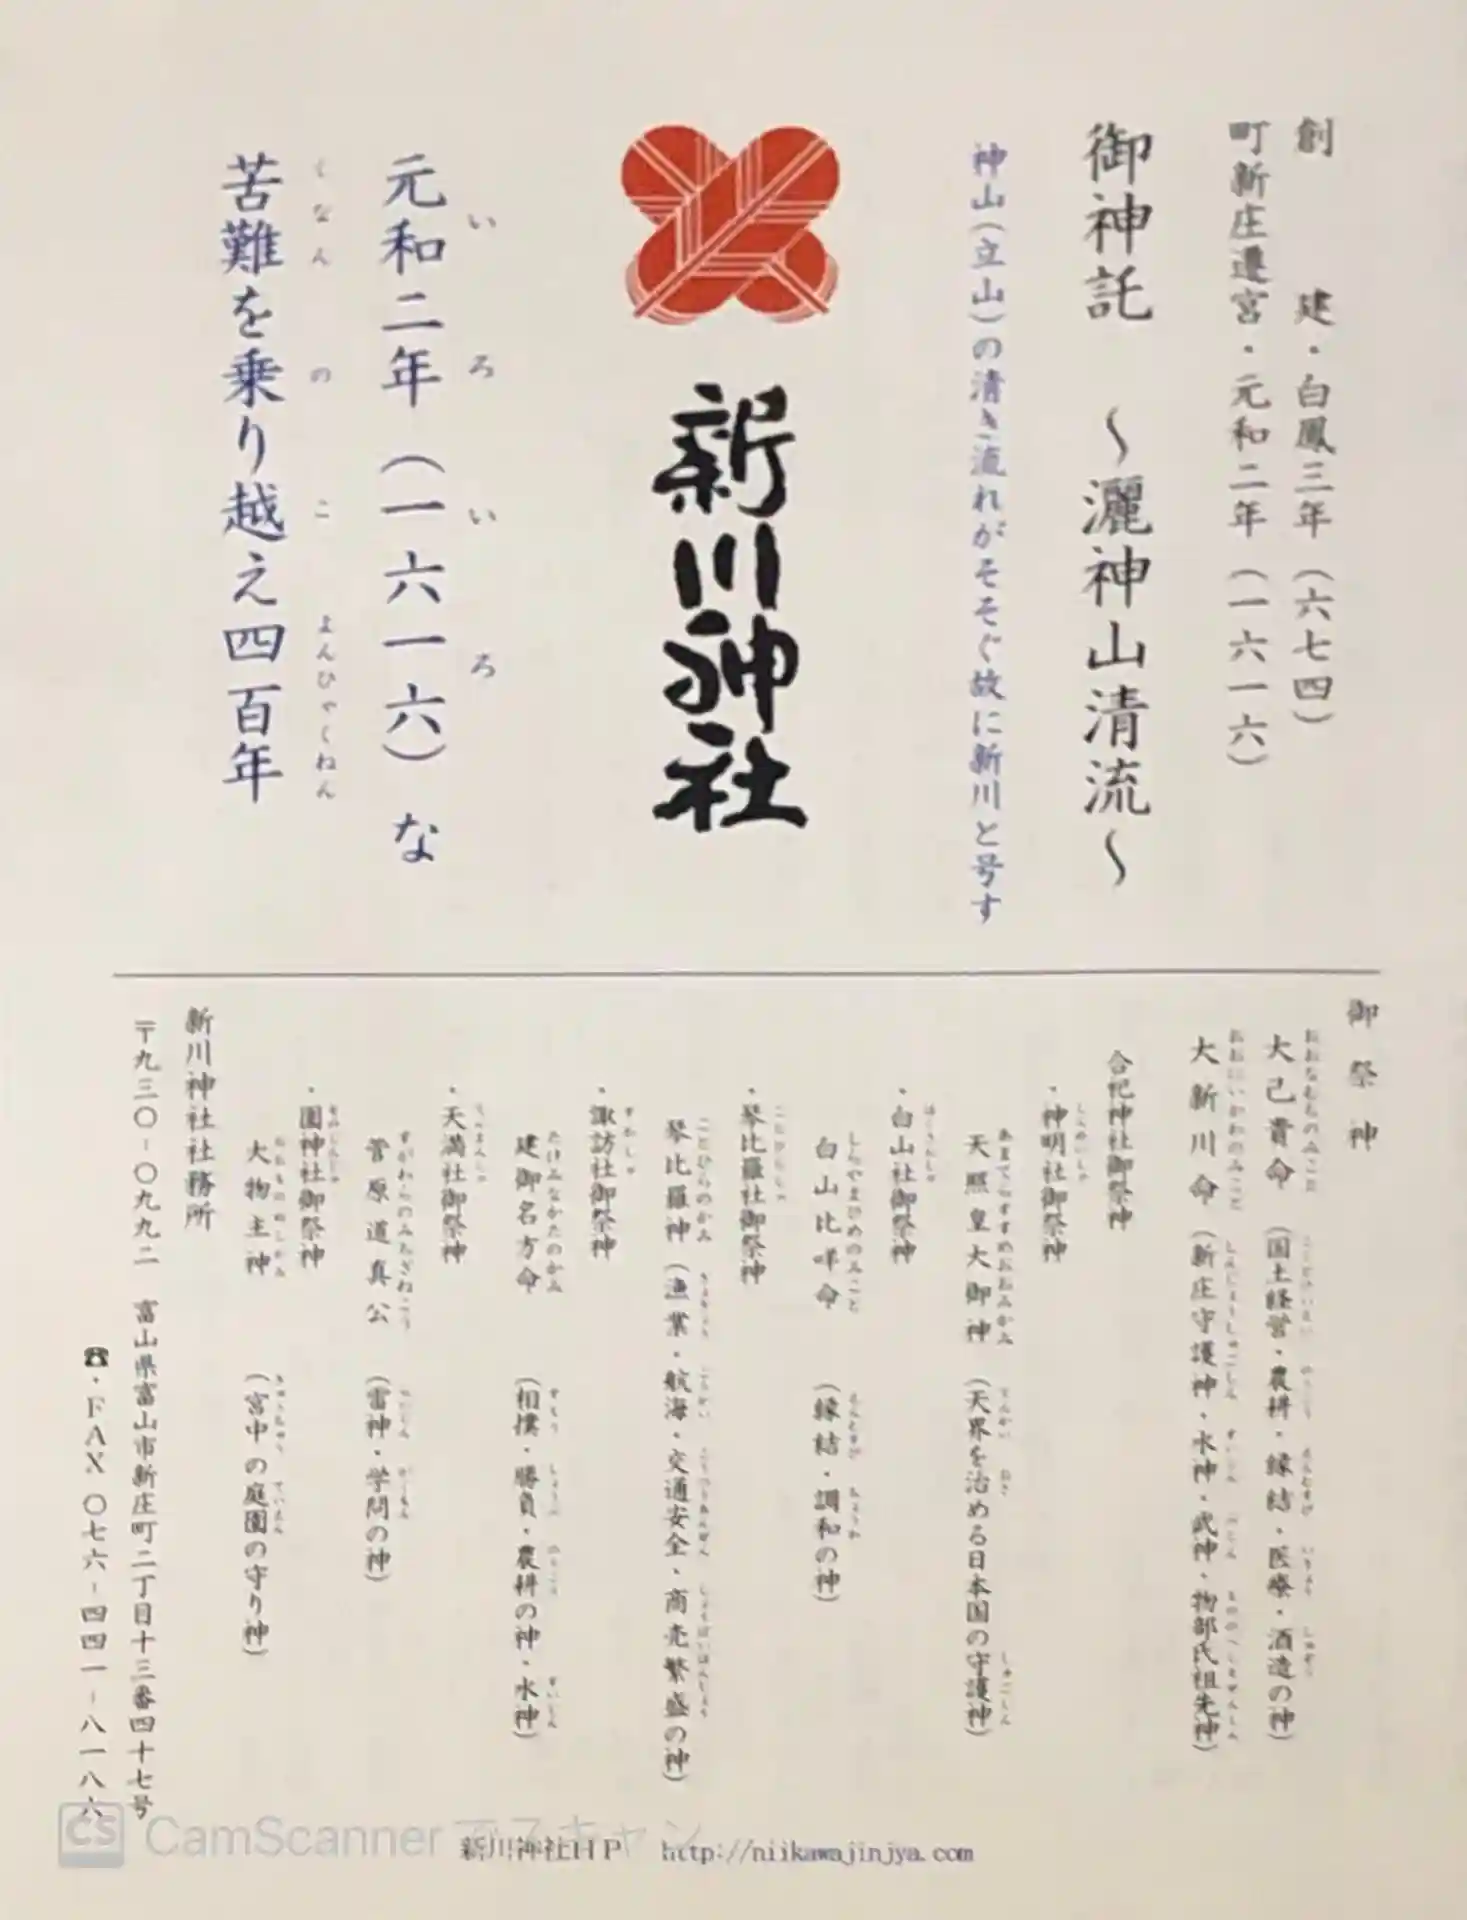 創　　建・白鳳三年（六七四）
町新庄遷宮・元和二年（一六一六）
御神託　～灑神山清流～
神山（立山）の清き流れがそそぐ故に新川と号す
新川神社
いろいろ
元和二年（一六一六）な
くなんのこよんひゃくねん
苦難を乗り越え四百年
御祭神
おおなむちのみこと
大己貴命（国土経営・農耕・縁結・医療・酒造の神）
おおにいかわのみこと
大新川命（新庄守護神・水神・武神・物部氏祖先神）
合祀神社御祭神
・神明社御祭神
天照皇大御神（天界を治める日本国の守護神）
・白山社御祭神
白山比咩命（縁結・調和の神）
・琴比羅社御祭神
琴比羅神（漁業・航海・交通安全・商売繁盛の神）
・諏訪社御祭神
建御名方命（相撲・勝負・農耕の神・水神）
・天満社御祭神
菅原道真公（雷神・学問の神）
・園神社御祭神
大物主神（宮中の庭園の守り神）
新川神社社務所
〒九三〇-〇九九二　富山県富山市新庄町二丁目十三番四十七号
☎・FAX 〇七六-四四一-八一八六
新川神社HP　http://niikawajinjya.com
CS CamScanner でスキャン